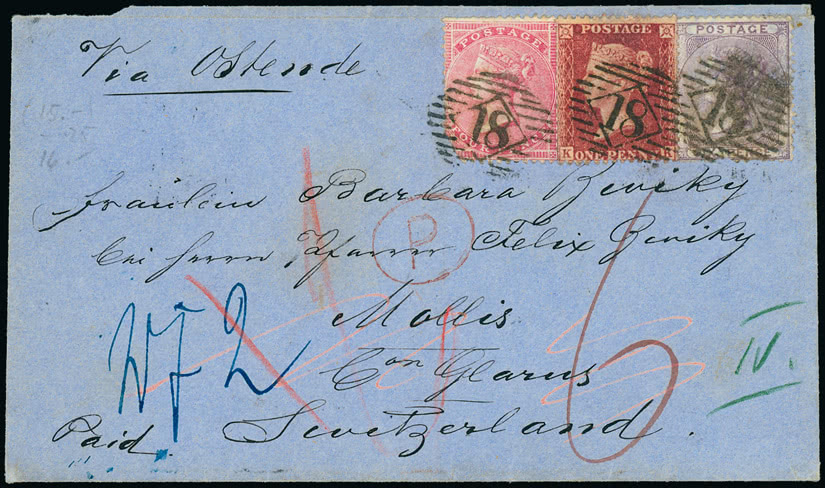 Via Ostende
POSTAGE
POSTAGE
POSTAGE
18
18
18
FOUR
K ONE PENNY R
15.-
16.-
Fräulein Barbara Zwiky
bei Herrn Pfarrer Felix Zwiky
P
Mollis
Con Glarus
Switzerland.
Paid
2
6
IV.